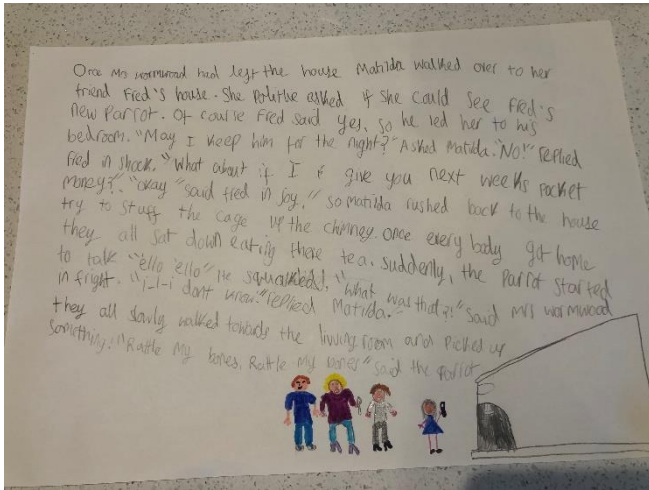 Once Mrs wormwood had left the house Matilda walked over to her
friend Fred's house. She politlue asked if she could see Fred's
new Parrot. Of course Fred said yes, so he led her to his
bedroom. "May I keep him for the night?" Asked Matilda. "No!" replied
fred in shock. "What about if I give you next weeks pocket
money?". "okay" said fred in joy." so Matilda rushed back to the house
try to stuff the cage up the chimney. once every body got home
they all sat down eating there tea. suddenly, the parrot started
to talk "ello 'ello" He squawked, "what was that?!" said mrs wormwood
in fright. "i-i-i dont know." replied Matilda."
they all slowly walked towards the living room and picked up
something. "Rattle My bones, Rattle My bones" said the parrot